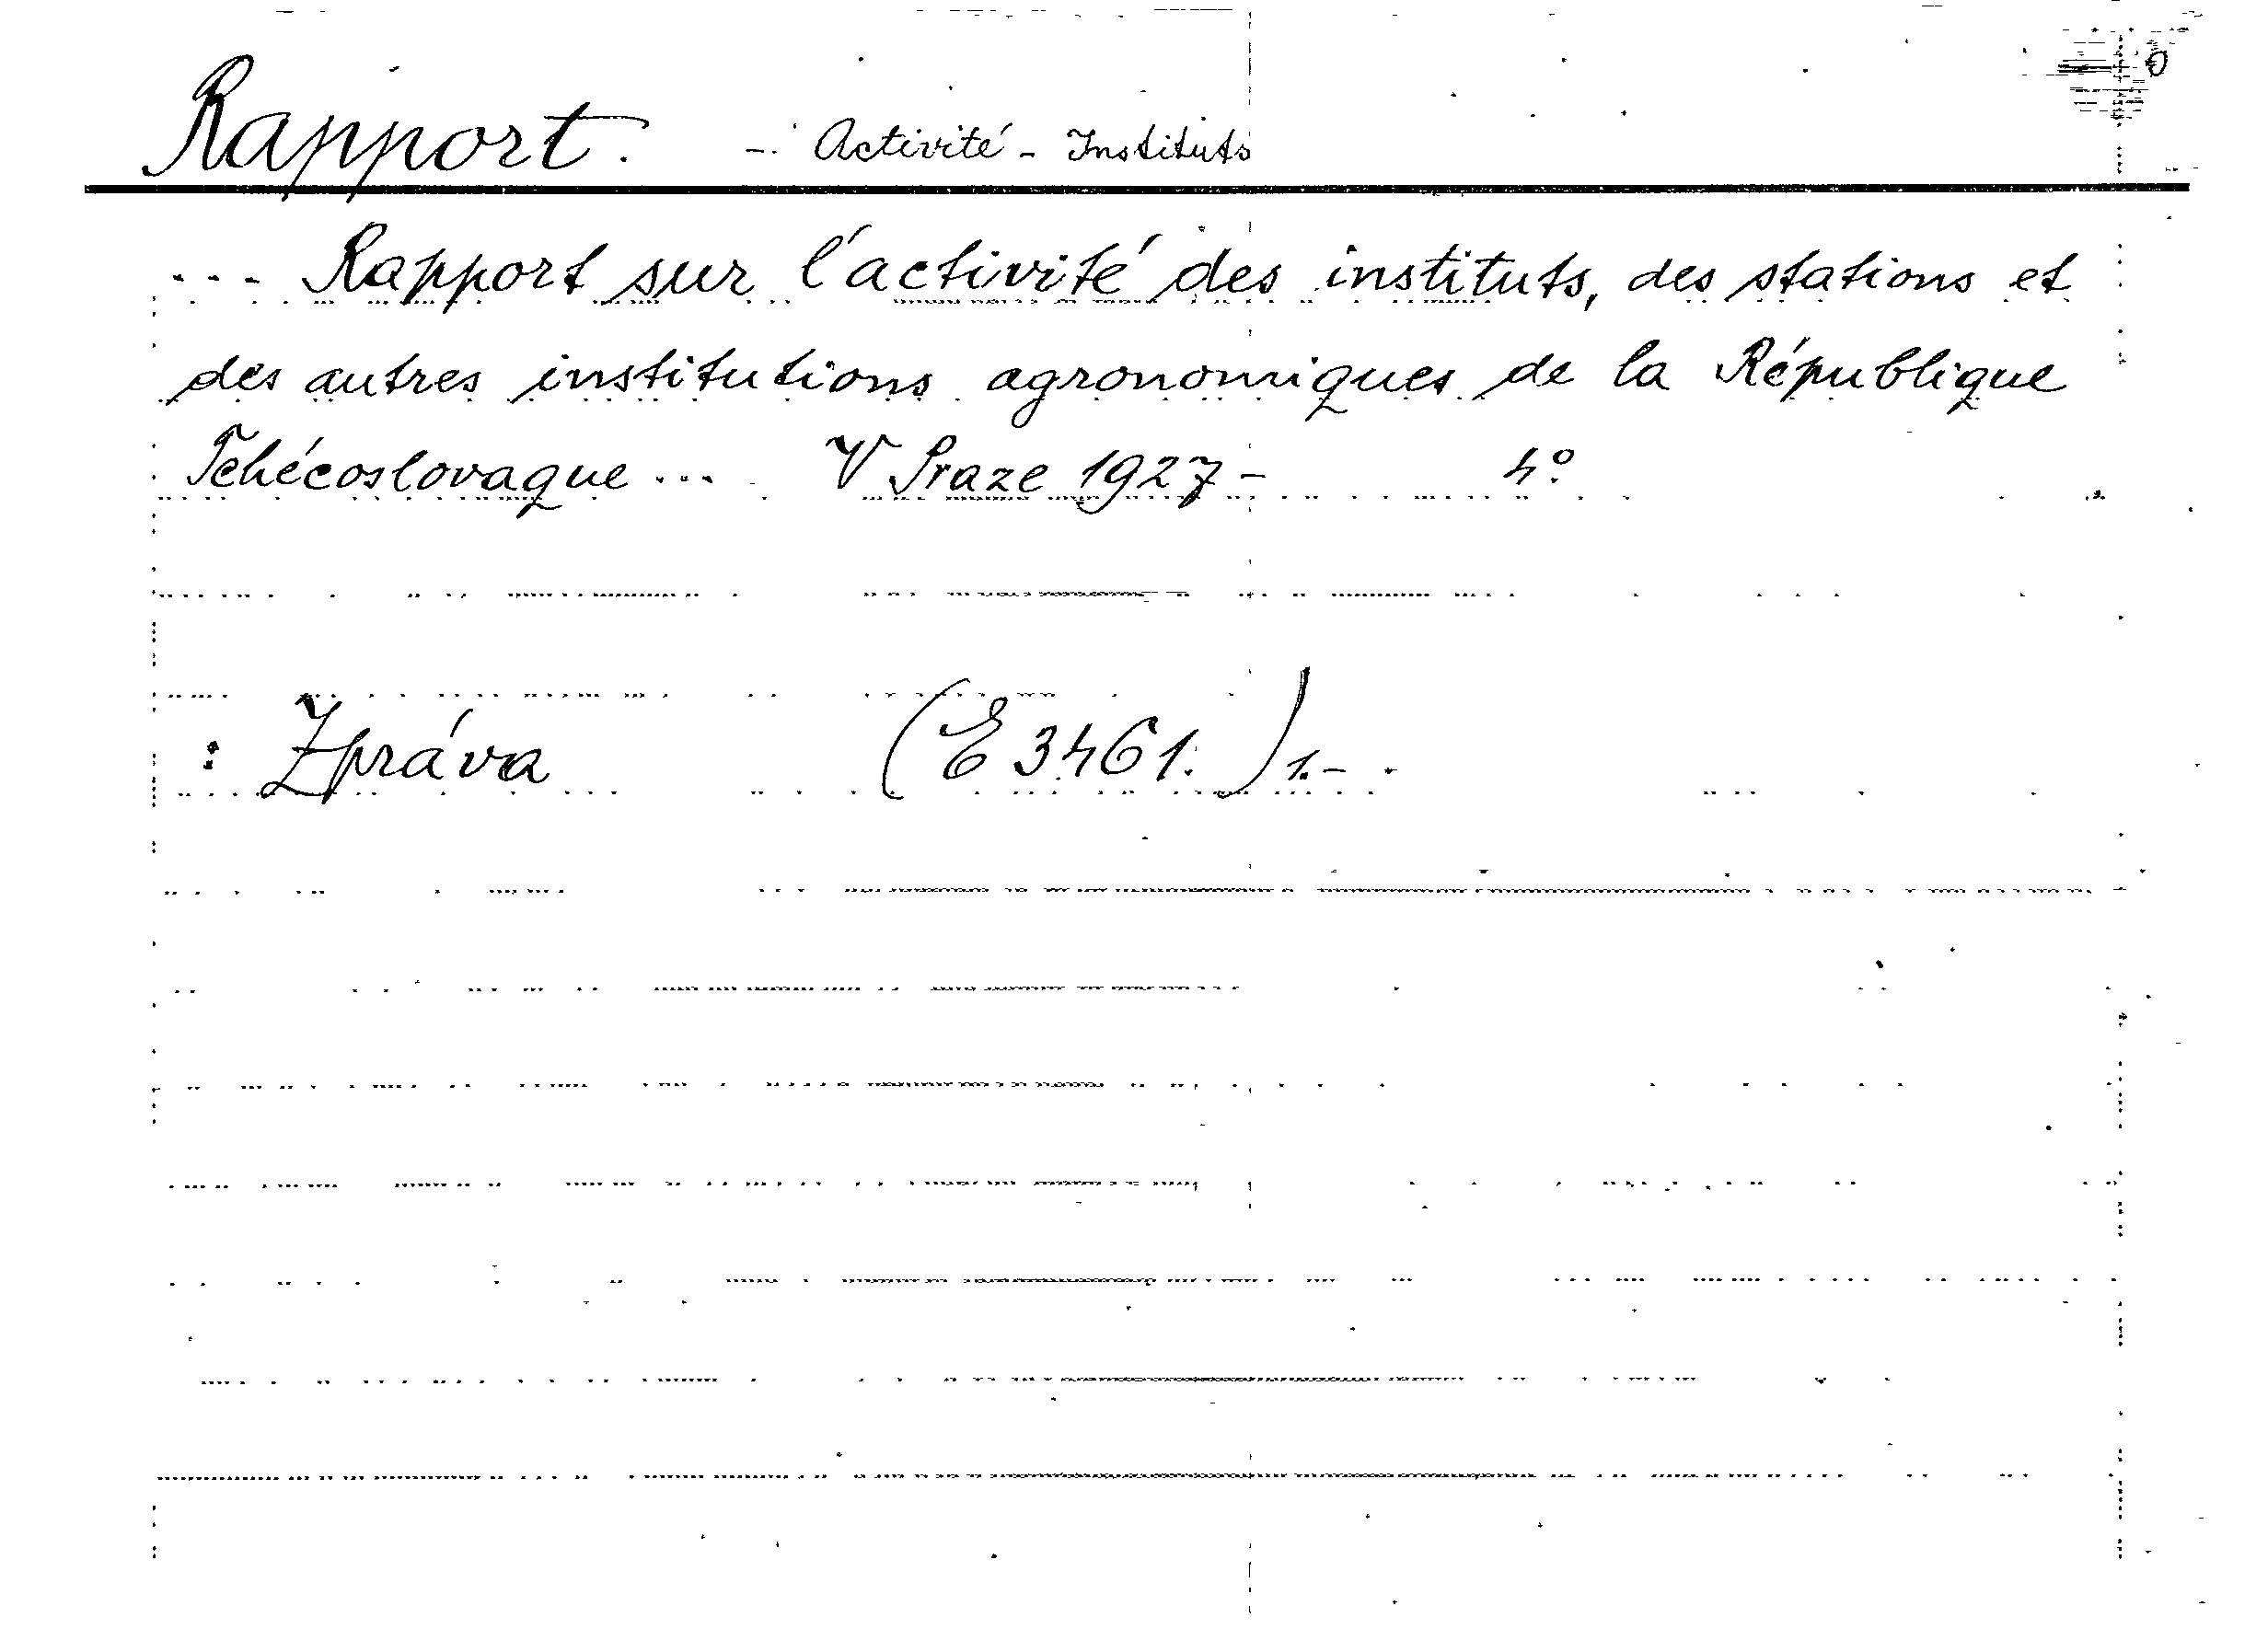 Rapport. - Activité - Instituts
... Rapport sur l'activité des instituts, des stations et
des autres institutions agronomiques de la République
Tchécoslovaque ... V Praze 1927- 4°
: Zpráva (E 3461.) 1.-